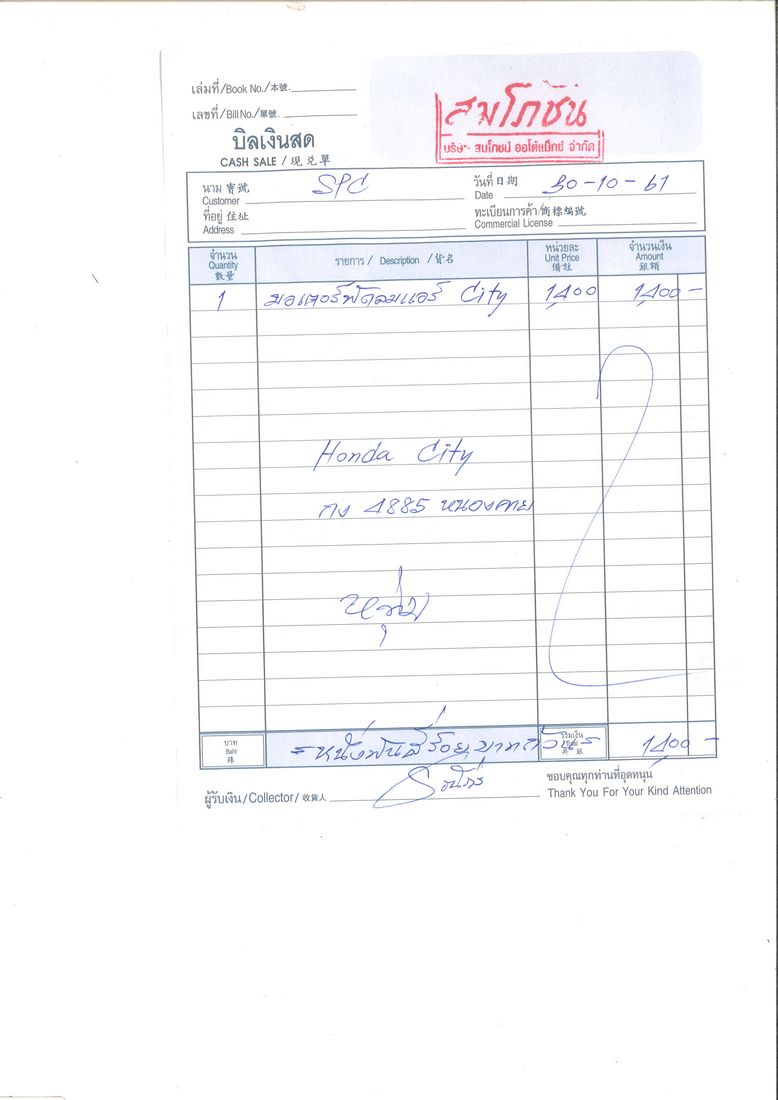 เล่มที่/Book No./本號.
เลขที่/Bill No./單號.
บิลเงินสด
CASH SALE / 現兑單
สมโภชน์
บริษัท สมโภชน์ ออโต้แม็กซ์ จำกัด
นาม 寶號 SPC
Customer
วันที่ 日期 30-10-61
Date
ที่อยู่ 住址
Address
ทะเบียนการค้า/商標編號
Commercial License
จำนวน
Quantity
數量
รายการ / Description / 貨名
หน่วยละ
Unit Price
備註
จำนวนเงิน
Amount
銀額
1 มอเตอร์พัดลมแอร์ City 1,400 1,400 -
Honda City
กง 4885 หนองคาย
บาท
Baht
銖
= หนึ่งพันสี่ร้อยบาทถ้วน =
รวมเงิน
Total
共銀
1,400 -
ผู้รับเงิน/Collector/收貨人
ขอบคุณทุกท่านที่อุดหนุน
Thank You For Your Kind Attention